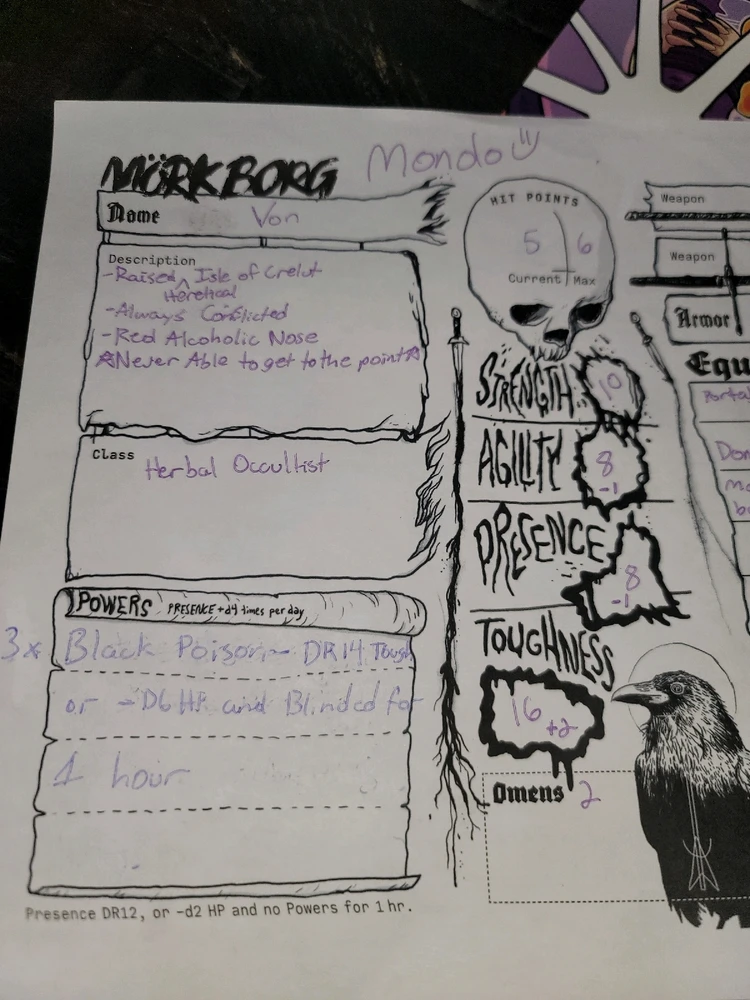 MÖRK BORG Mondo
Name Von
Description
-Raised Heretical Isle of Crelut
-Always Conflicted
-Red Alcoholic Nose
Never Able to get to the point
Class Herbal Occultist
POWERS PRESENCE +d4 times per day
3x Black Poison - DR14 Tough
or -D6 HP and Blinded for
1 hour
Presence DR12, or -d2 HP and no Powers for 1 hr.
HIT POINTS
5 6
Current Max
STRENGTH 10
AGILITY 8
-1
PRESENCE 8
-1
TOUGHNESS
16 +2
Omens 2
Weapon
Weapon
Armor
Equ